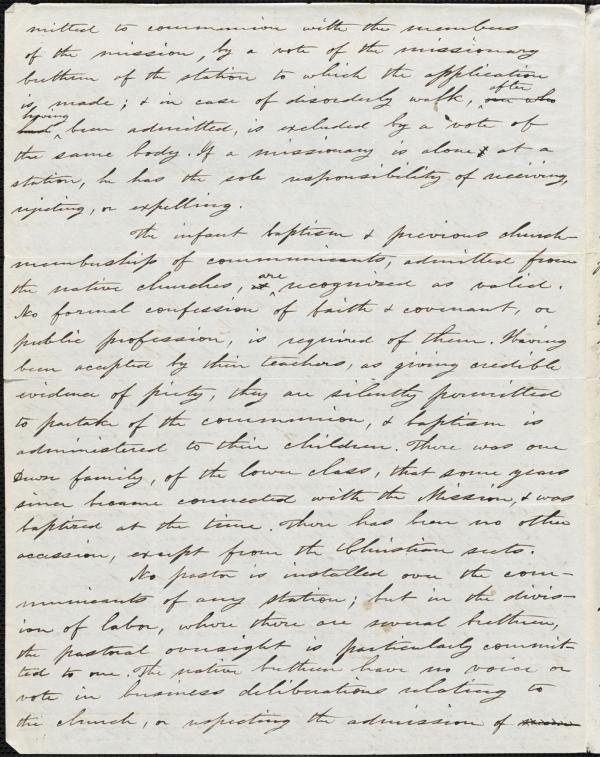 mitted to communion with the members
of the mission, by a vote of the missionary
brethren of the station to which the application
is made; & in case of disorderly walk, after
having been admitted, is excluded by a vote of
the same body. If a missionary is alone at a
station, he has the sole responsibility of receiving,
rejecting, or expelling.
The infant baptism & previous church-
membership of communicants, admitted from
the native churches, are recognized as valid.
No formal confession of faith & covenant, or
public profession, is required of them. Having
been accepted by their teachers, as giving credible
evidence of piety, they are silently permitted
to partake of the communion, & baptism is
administered to their children. There was one
family, of the lower class, that some years
since became connected with the Mission, & was
baptized at the time. There has been no other
accession, except from the Christian sects.
No pastor is installed over the com-
municants of any station; but in the divis-
ion of labor, where there are several brethren,
the pastoral oversight is particularly commit-
ted to one. The native brethren have no voice or
vote in business deliberations relating to
the church, or respecting the admission of